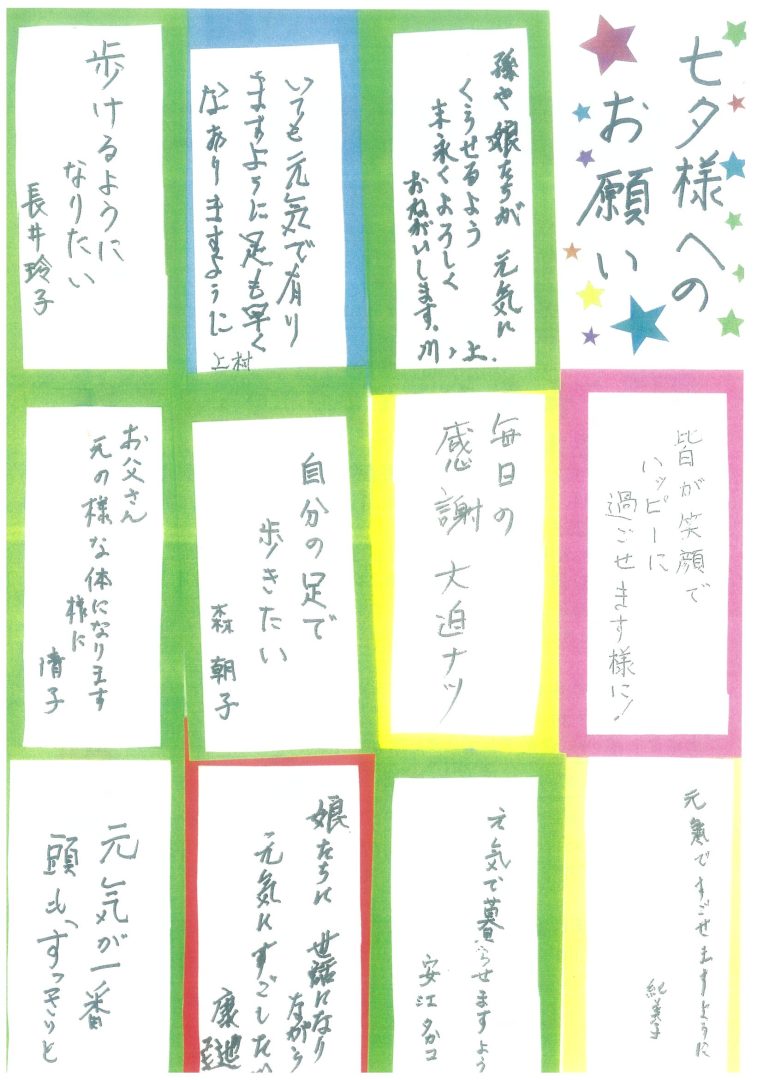 七夕様への
お願い
孫や娘たちが 元気に
くらせるよう
末永くよろしく
おねがいします。
川ノ上.
いても元気で有り
ますように足も早く
なおりますように
上村
歩けるように
なりたい
長井玲子
皆が笑顔で
ハッピーに
過ごせます様に!
毎日の
感謝 大迫ナツ
自分の足で
歩きたい
森 朝子
お父さん
元の様な体になります
様に
清子
元気ですごせますように
紀美子
元気で暮らせますよう
安江
娘たちに世話になり
ながら
元気にすごしたい
元気が一番
頭も、すっきりと